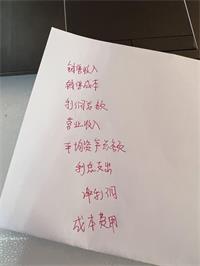 销售收入
销售成本
利润总额
营业收入
平均资产总额
利息支出
净利润
成本费用